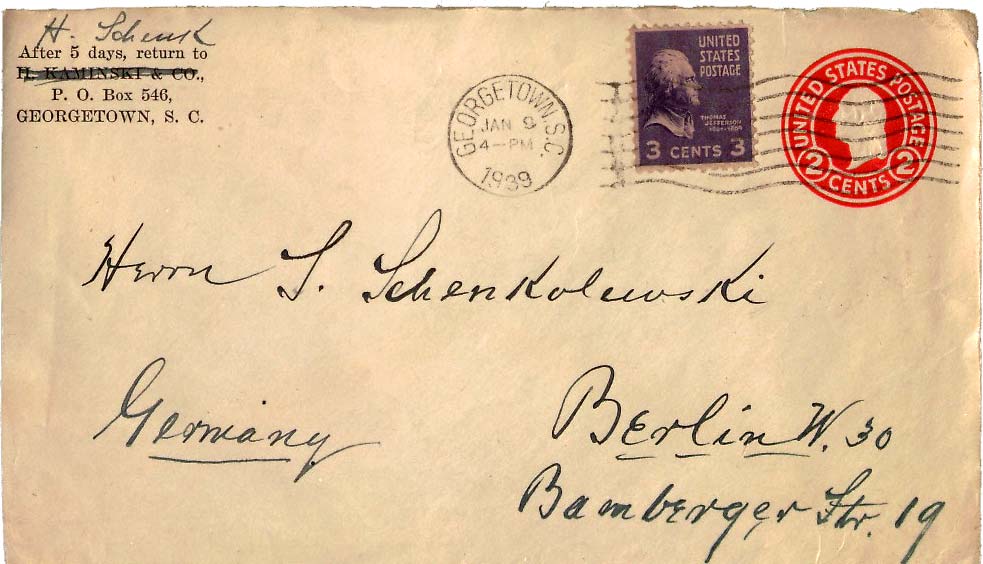 H. Schenk
After 5 days, return to
H. KAMINSKI & CO.,
P. O. Box 546,
GEORGETOWN, S. C.
GEORGETOWN, S.C.
JAN 9
4-PM
1939
UNITED
STATES
POSTAGE
THOMAS
JEFFERSON
1801-1809
3 CENTS 3
UNITED STATES POSTAGE
2 CENTS 2
Herrn S. Schenkolewski
Germany
Berlin W. 30
Bamberger Str. 19